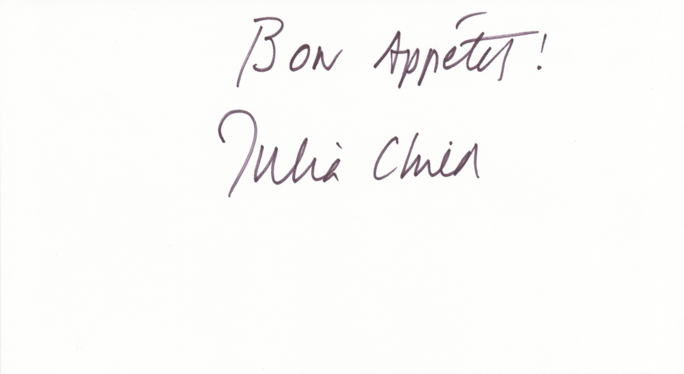 Bon Appétit!
Julia Child